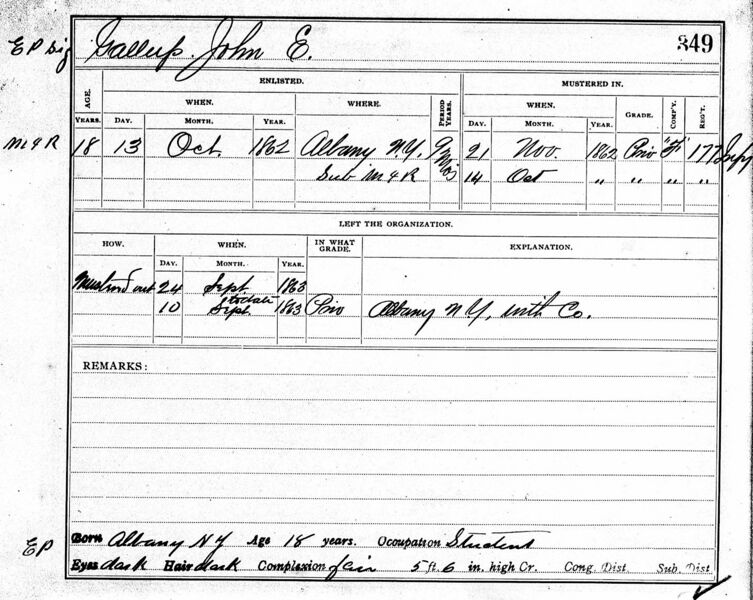 E P Sig Gallup. John E. 349
ENLISTED. MUSTERED IN.
AGE. WHEN. WHERE. PERIOD YEARS. WHEN. GRADE. COMP'Y. REG'T.
YEARS. DAY. MONTH. YEAR. DAY. MONTH. YEAR.
M & R 18 13 Oct. 1862 Albany N.Y. 9 Mos 21 Nov. 1862 Priv "F" 177 Inf
Sub M & R 14 Oct " " " "
LEFT THE ORGANIZATION.
HOW. WHEN. IN WHAT GRADE. EXPLANATION.
DAY. MONTH. YEAR.
Mustered out 24 Sept 1863
to date
10 Sept. 1863 Priv Albany N Y, with Co.
REMARKS:
E P Born Albany N Y Age 18 years. Occupation Student
Eyes dark Hair dark Complexion fair 5 ft. 6 in. high Cr. Cong. Dist. Sub. Dist